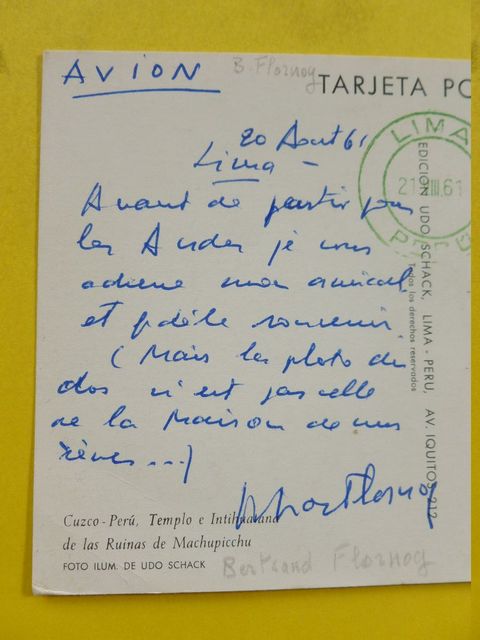 AVION
B. Flornoy
TARJETA PO
20 Aout 61
Lima
LIMA
21 VIII.61
PERU
Avant de partir pour
les Andes je vous
adresse mon amical
et fidèle souvenir.
(Mais la photo du
dos n'est pas celle
de la Maison de mes
rêves...)
Flornoy
EDICION UDO SCHACK, LIMA - PERU, AV. IQUITOS 212
Todos los derechos reservados
Cuzco-Perú, Templo e Intihuatana
de las Ruinas de Machupicchu
FOTO ILUM. DE UDO SCHACK
Bertrand Flornoy